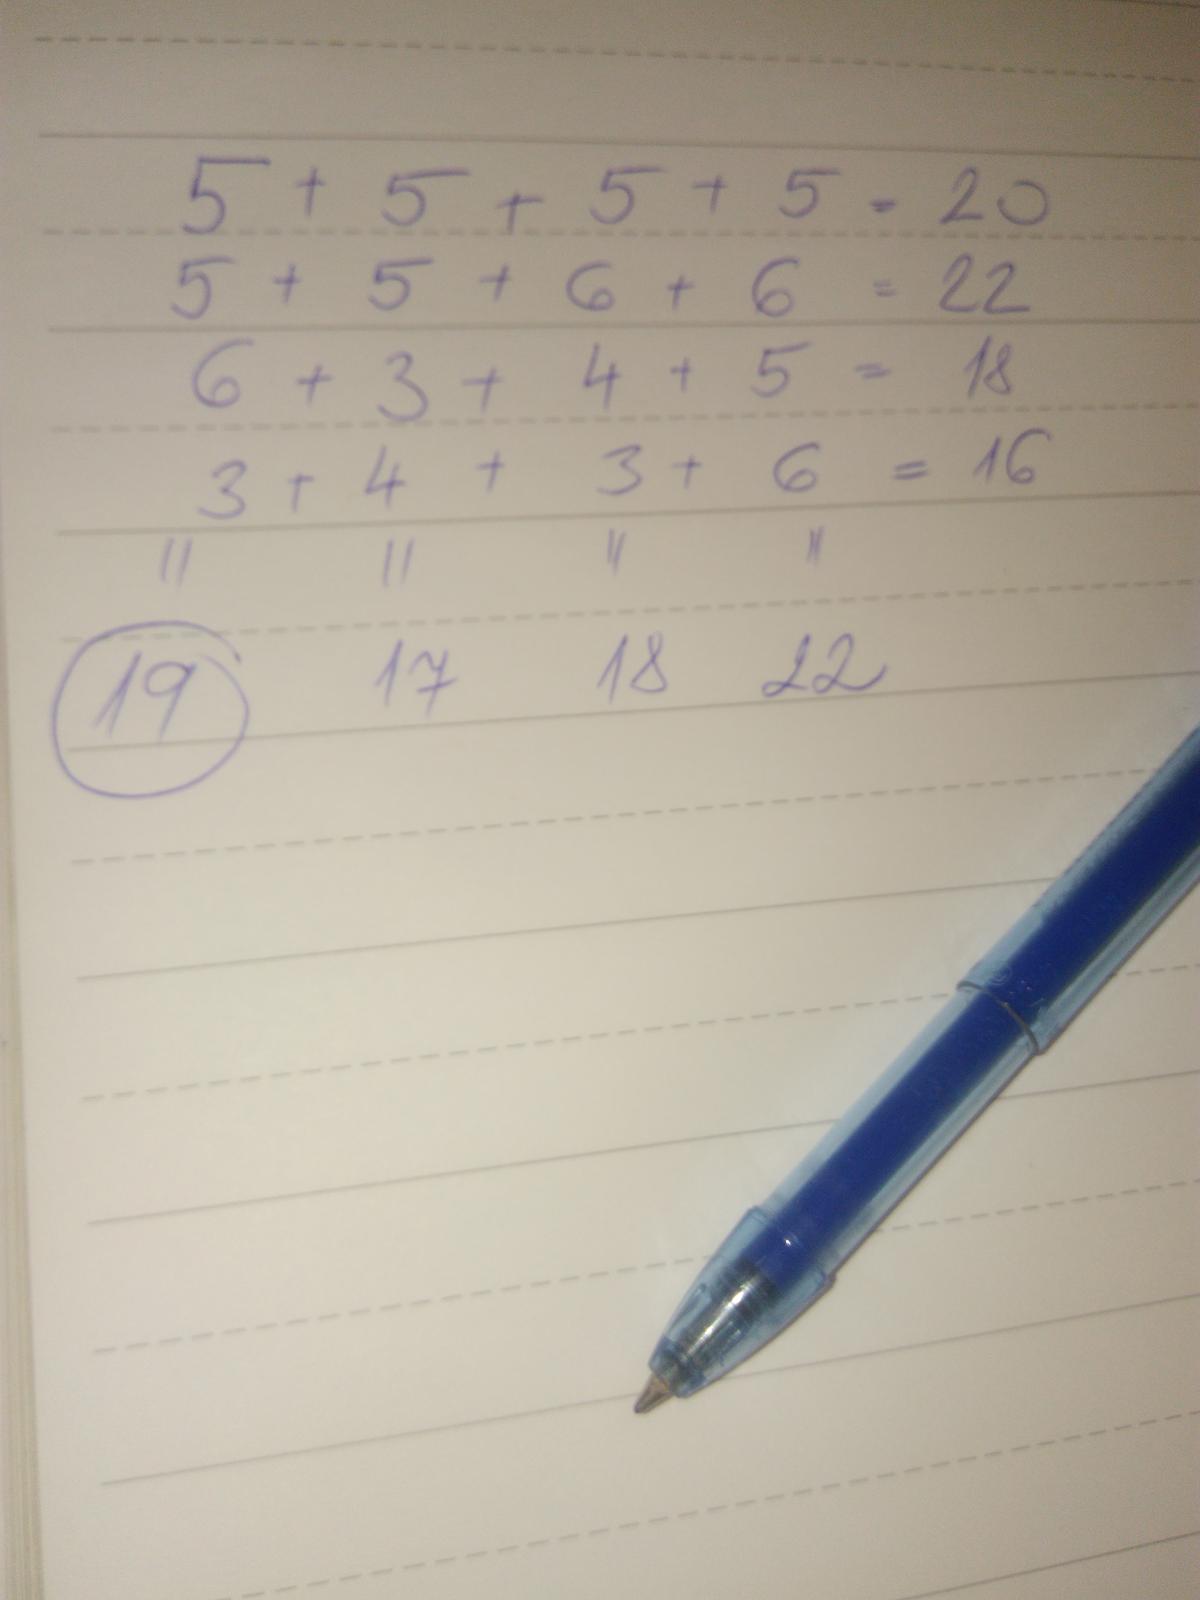 5 + 5 + 5 + 5 = 20
5 + 5 + 6 + 6 = 22
6 + 3 + 4 + 5 = 18
3 + 4 + 3 + 6 = 16
= = = =
19 17 18 22